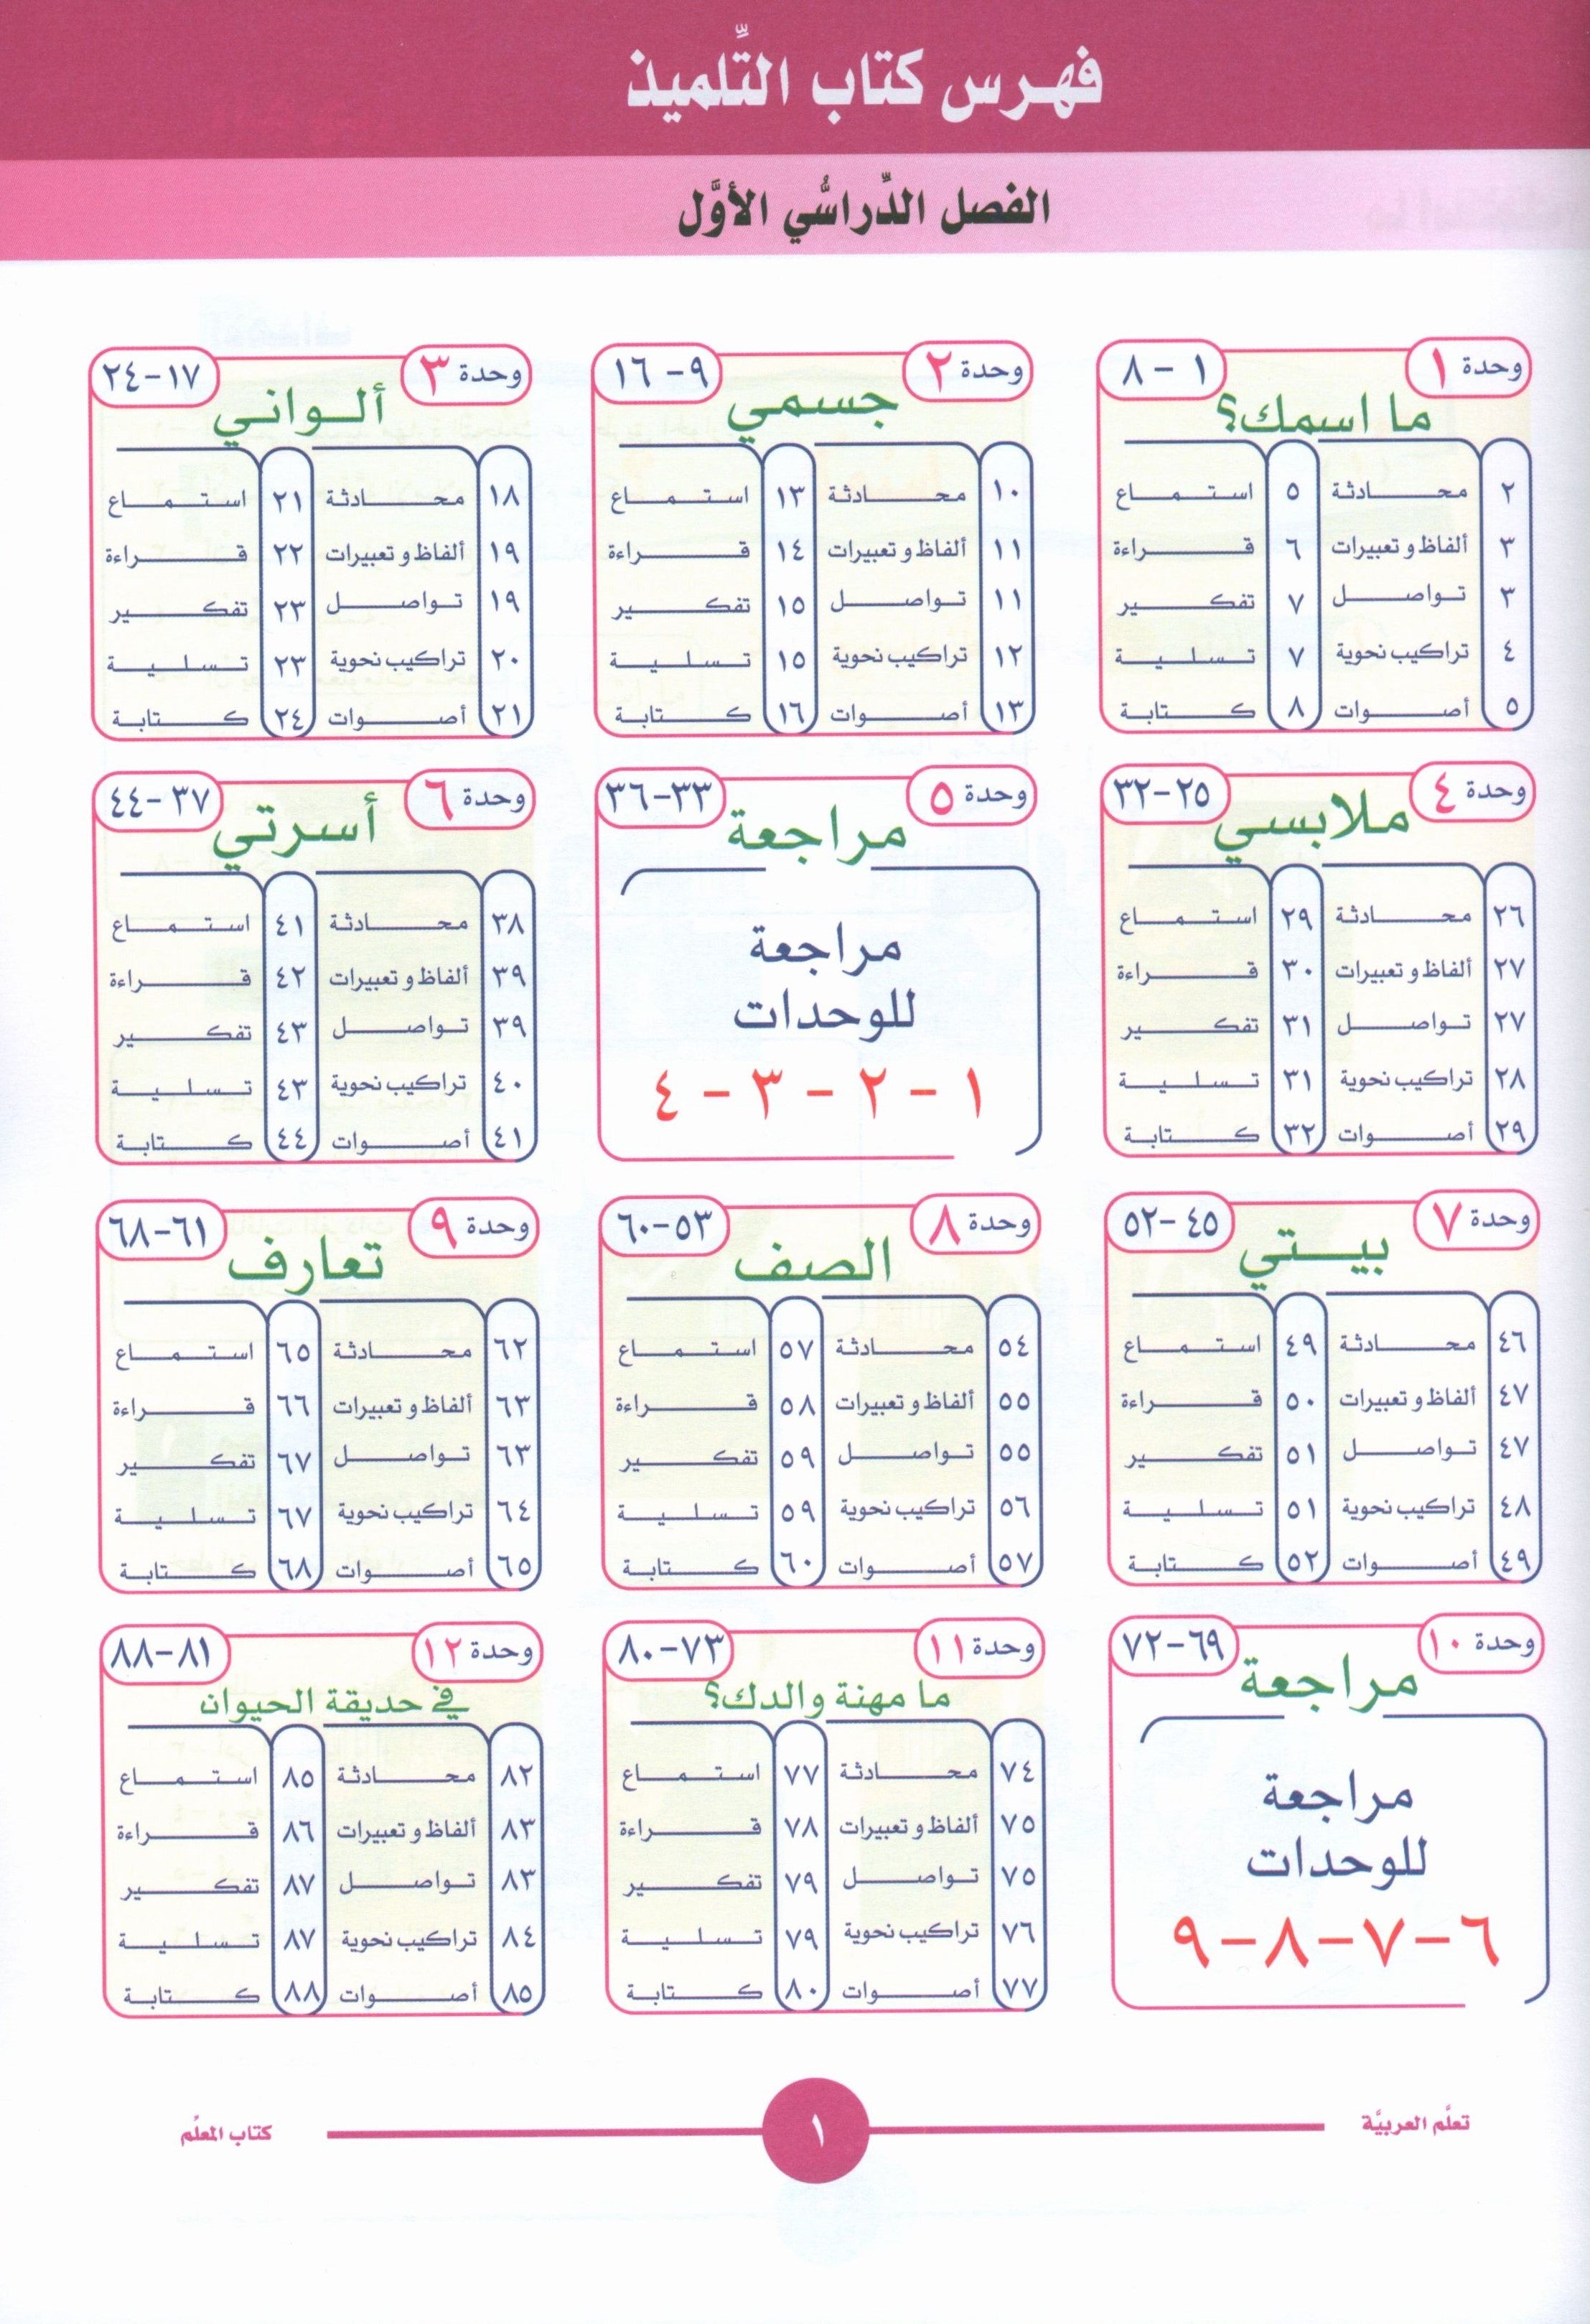 فهرس كتاب التِّلميذ
الفصل الدِّراسُّي الأوَّل
وحدة ١
١ - ٨
ما اسمك؟
٢ محادثة ٥ استماع
٣ ألفاظ و تعبيرات ٦ قراءة
٣ تواصل ٧ تفكير
٤ تراكيب نحوية ٧ تسلية
٥ أصوات ٨ كتابة
وحدة ٢
٩ - ١٦
جسمي
١٠ محادثة ١٣ استماع
١١ ألفاظ و تعبيرات ١٤ قراءة
١١ تواصل ١٥ تفكير
١٢ تراكيب نحوية ١٥ تسلية
١٣ أصوات ١٦ كتابة
وحدة ٣
١٧-٢٤
ألواني
١٨ محادثة ٢١ استماع
١٩ ألفاظ و تعبيرات ٢٢ قراءة
١٩ تواصل ٢٣ تفكير
٢٠ تراكيب نحوية ٢٣ تسلية
٢١ أصوات ٢٤ كتابة
وحدة ٤
٢٥-٣٢
ملابسي
٢٦ محادثة ٢٩ استماع
٢٧ ألفاظ و تعبيرات ٣٠ قراءة
٢٧ تواصل ٣١ تفكير
٢٨ تراكيب نحوية ٣١ تسلية
٢٩ أصوات ٣٢ كتابة
وحدة ٥
٣٣-٣٦
مراجعة
مراجعة
للوحدات
١ - ٢ - ٣ - ٤
وحدة ٦
٣٧-٤٤
أسرتي
٣٨ محادثة ٤١ استماع
٣٩ ألفاظ و تعبيرات ٤٢ قراءة
٣٩ تواصل ٤٣ تفكير
٤٠ تراكيب نحوية ٤٣ تسلية
٤١ أصوات ٤٤ كتابة
وحدة ٧
٤٥-٥٢
بيتي
٤٦ محادثة ٤٩ استماع
٤٧ ألفاظ و تعبيرات ٥٠ قراءة
٤٧ تواصل ٥١ تفكير
٤٨ تراكيب نحوية ٥١ تسلية
٤٩ أصوات ٥٢ كتابة
وحدة ٨
٥٣-٦٠
الصف
٥٤ محادثة ٥٧ استماع
٥٥ ألفاظ و تعبيرات ٥٨ قراءة
٥٥ تواصل ٥٩ تفكير
٥٦ تراكيب نحوية ٥٩ تسلية
٥٧ أصوات ٦٠ كتابة
وحدة ٩
٦١-٦٨
تعارف
٦٢ محادثة ٦٥ استماع
٦٣ ألفاظ و تعبيرات ٦٦ قراءة
٦٣ تواصل ٦٧ تفكير
٦٤ تراكيب نحوية ٦٧ تسلية
٦٥ أصوات ٦٨ كتابة
وحدة ١٠
٦٩-٧٢
مراجعة
مراجعة
للوحدات
٦-٧-٨-٩
وحدة ١١
٧٣-٨٠
ما مهنة والدك؟
٧٤ محادثة ٧٧ استماع
٧٥ ألفاظ و تعبيرات ٧٨ قراءة
٧٥ تواصل ٧٩ تفكير
٧٦ تراكيب نحوية ٧٩ تسلية
٧٧ أصوات ٨٠ كتابة
وحدة ١٢
٨١-٨٨
في حديقة الحيوان
٨٢ محادثة ٨٥ استماع
٨٣ ألفاظ و تعبيرات ٨٦ قراءة
٨٣ تواصل ٨٧ تفكير
٨٤ تراكيب نحوية ٨٧ تسلية
٨٥ أصوات ٨٨ كتابة
تعلَّم العربيَّة
١
كتاب المعلِّم